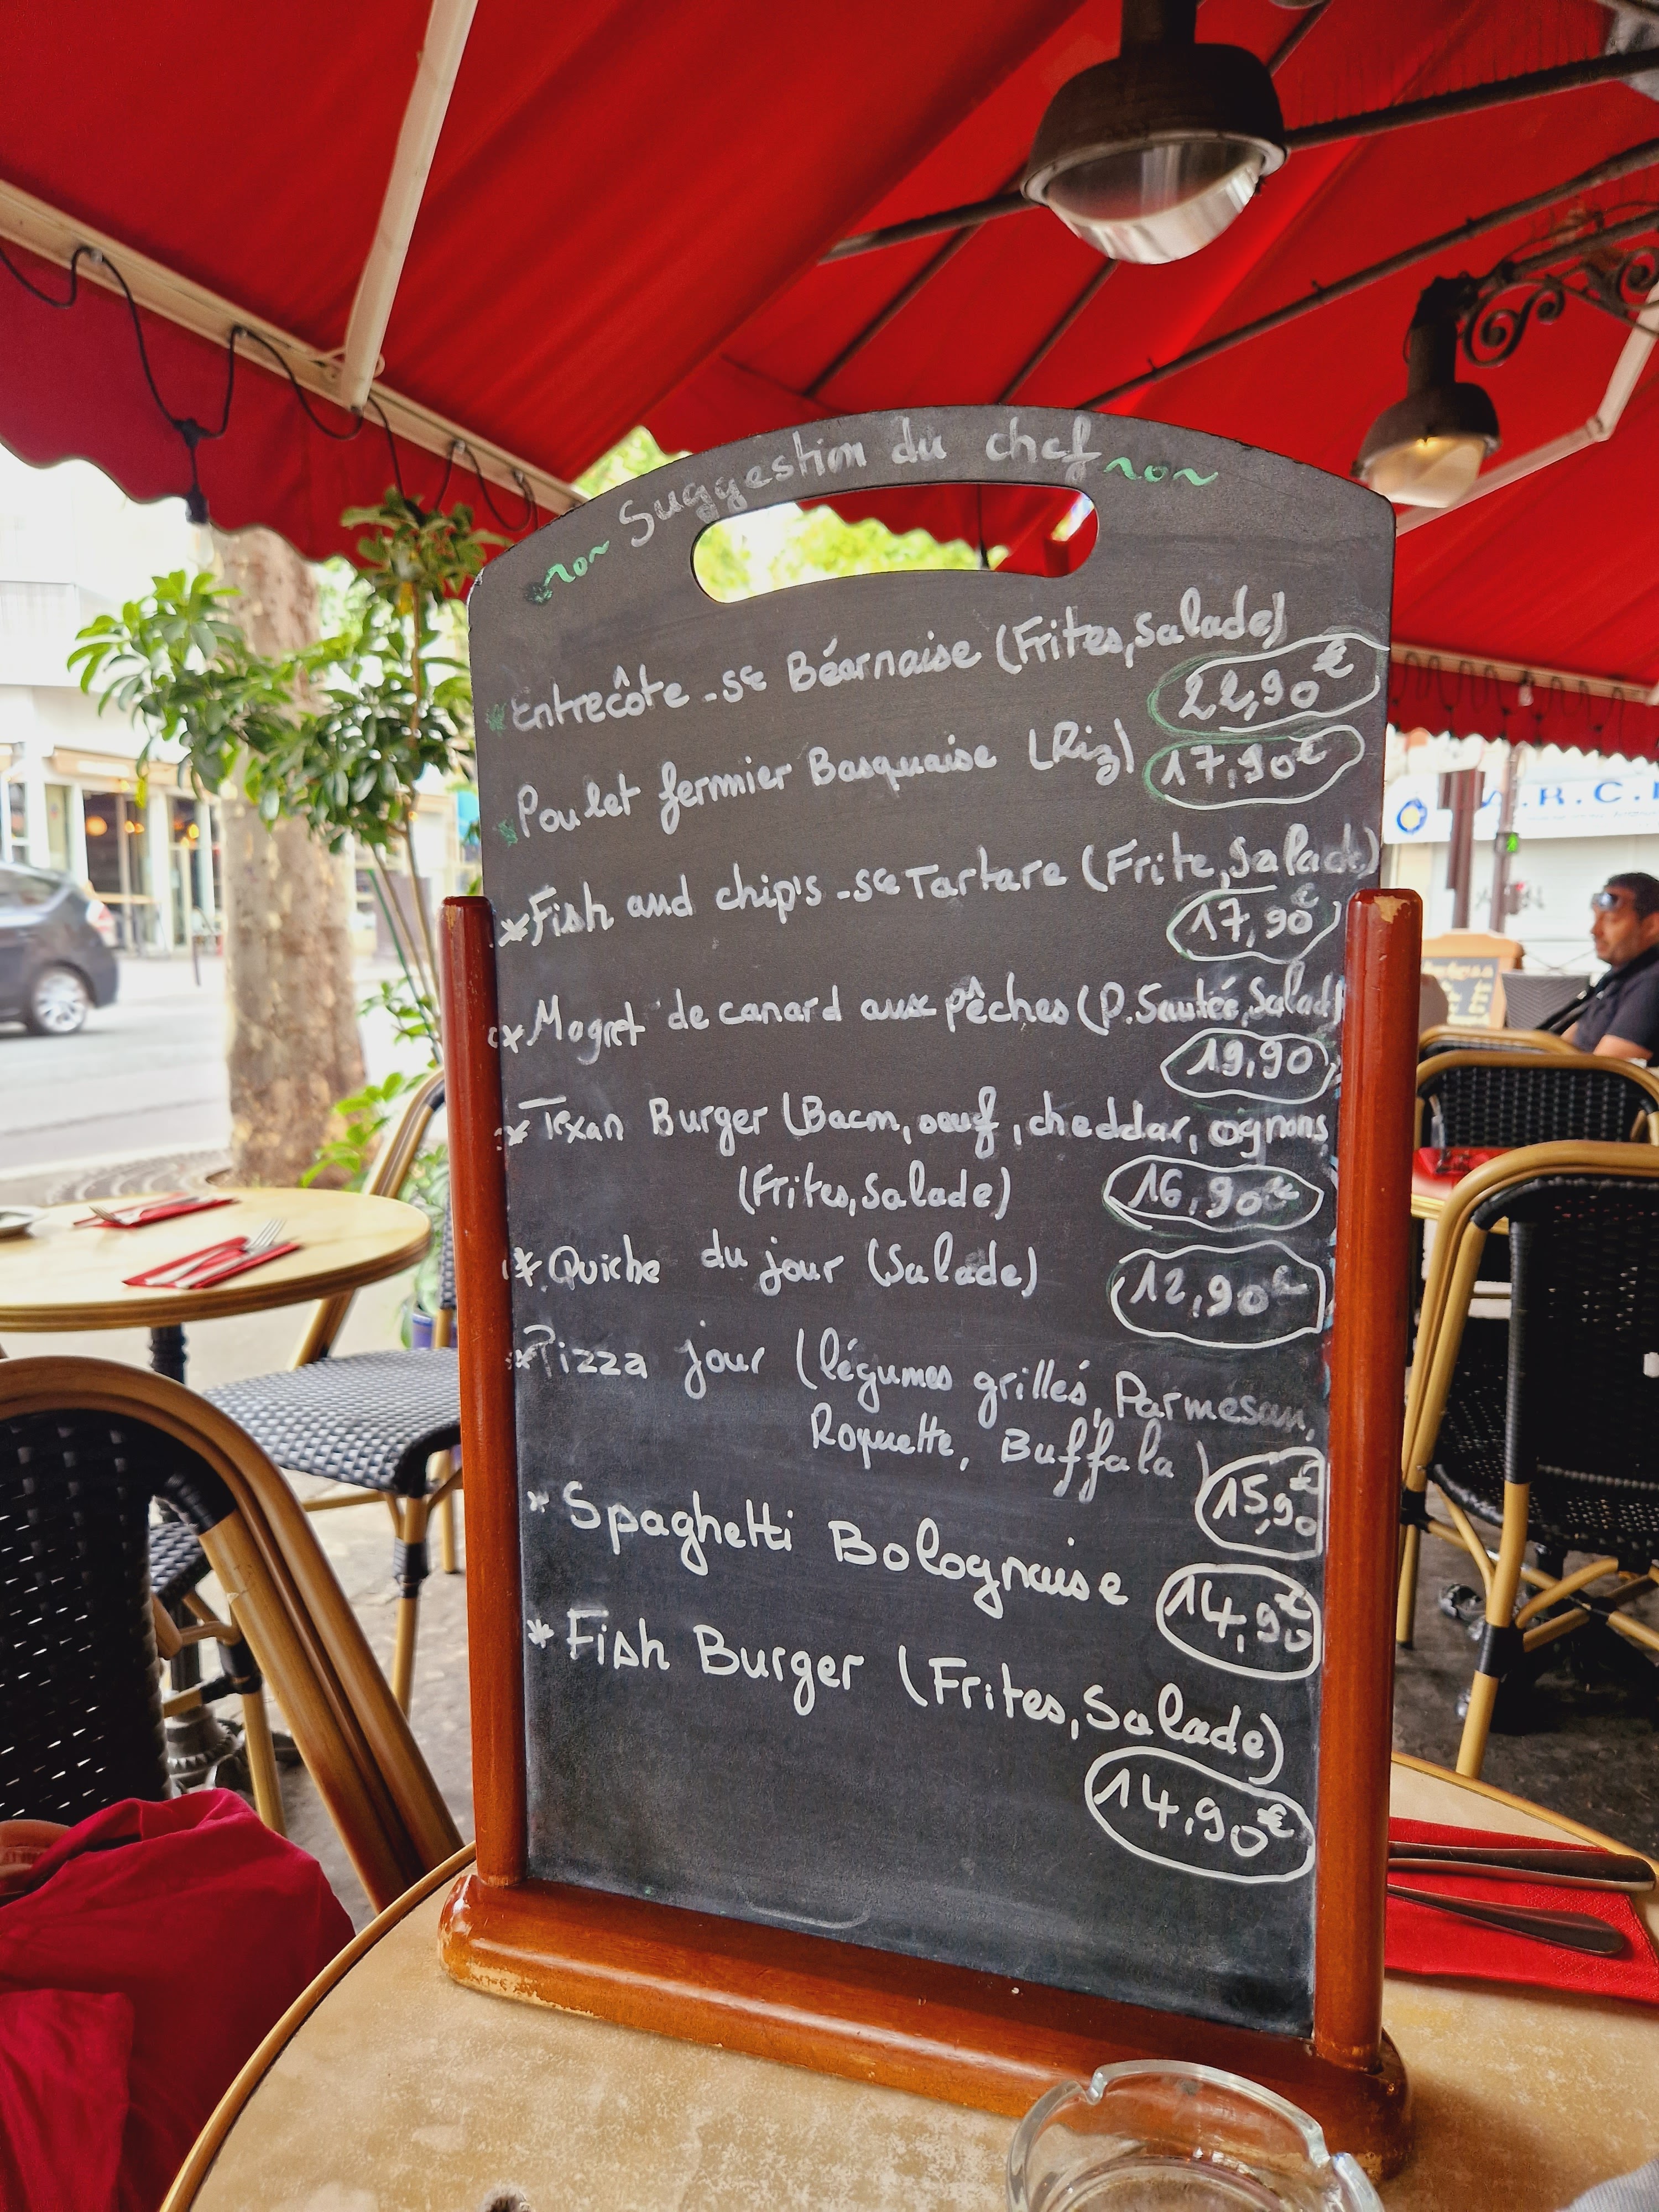 Suggestion du chef
* Entrecôte - sce Béarnaise (Frites, Salade)
22,90€
* Poulet fermier Basquaise (Riz) 17,90€
* Fish and chip's - sce Tartare (Frite, Salade)
17,90€
* Magret de canard aux pêches (P. Sautée, Salad)
19,90
* Texan Burger (Bacon, oeuf, cheddar, ognons
(Frites, Salade) 16,90€
* Quiche du jour (Salade) 12,90€
* Pizza jour (légumes grillés, Parmesan,
Roquette, Buffala) 15,90€
* Spaghetti Bolognaise 14,90€
* Fish Burger (Frites, Salade)
14.90€